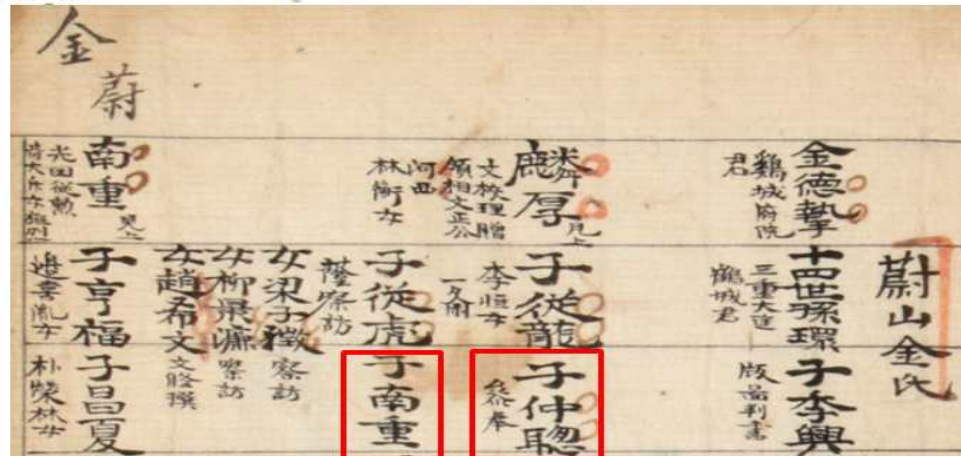 金
蔚
蔚山金氏
金德摯
鷄城府院
君
十四世孫環
三重大匡
鶴城君
子李興
版圖判書
麟厚見上
文校理贈
領相文正公
河西
林衡女
子從龍
李恒女
子仲聰
參奉
子從虎
蔭察訪
女梁子徵察訪
女柳景濂察訪
女趙希文文修撰
子南重
南重見上
子亨福
子昌夏
朴榮林女